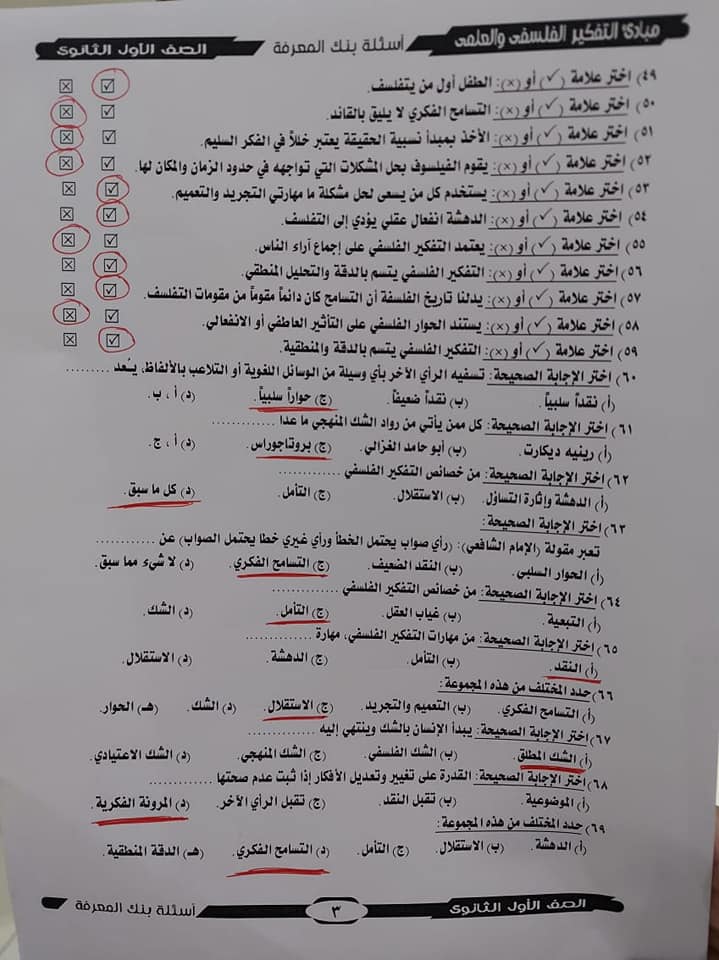 مبادئ التفكير الفلسفى والعلمى أسئلة بنك المعرفة الصف الأول الثانوى
٤٩) اختر علامة (✓) أو (×): الطفل أول من يتفلسف. ☑ ☒
٥٠) اختر علامة (✓) أو (×): التسامح الفكري لا يليق بالقائد. ☑ ☒
٥١) اختر علامة (✓) أو (×): الأخذ بمبدأ نسبية الحقيقة يعتبر خللاً في الفكر السليم. ☑ ☒
٥٢) اختر علامة (✓) أو (×): يقوم الفيلسوف بحل المشكلات التي تواجهه في حدود الزمان والمكان لها. ☑ ☒
٥٣) اختر علامة (✓) أو (×): يستخدم كل من يسعى لحل مشكلة ما مهارتي التجريد والتعميم. ☑ ☒
٥٤) اختر علامة (✓) أو (×): الدهشة انفعال عقلي يؤدي إلى التفلسف. ☑ ☒
٥٥) اختر علامة (✓) أو (×): يعتمد التفكير الفلسفي على إجماع آراء الناس. ☑ ☒
٥٦) اختر علامة (✓) أو (×): التفكير الفلسفي يتسم بالدقة والتحليل المنطقي. ☑ ☒
٥٧) اختر علامة (✓) أو (×): يدلنا تاريخ الفلسفة أن التسامح كان دائماً مقوماً من مقومات التفلسف. ☑ ☒
٥٨) اختر علامة (✓) أو (×): يستند الحوار الفلسفي على التأثير العاطفي أو الانفعالي. ☑ ☒
٥٩) اختر علامة (✓) أو (×): التفكير الفلسفي يتسم بالدقة والمنطقية. ☑ ☒
٦٠) اختر الإجابة الصحيحة: تسفيه الرأي الآخر بأي وسيلة من الوسائل اللغوية أو التلاعب بالألفاظ، يُعد .........
(أ) نقداً سلبياً. (ب) نقداً ضعيفاً. (ج) حواراً سلبياً. (د) أ ، ب.
٦١) اختر الإجابة الصحيحة: كل ممن يأتي من رواد الشك المنهجي ما عدا ............
(أ) رينيه ديكارت. (ب) أبو حامد الغزالي. (ج) بروتاجوراس. (د) أ ، ج.
٦٢) اختر الإجابة الصحيحة: من خصائص التفكير الفلسفي ............
(أ) الدهشة وإثارة التساؤل. (ب) الاستقلال. (ج) التأمل. (د) كل ما سبق.
٦٣) اختر الإجابة الصحيحة:
تعبر مقولة (الإمام الشافعي): (رأي صواب يحتمل الخطأ ورأي غيري خطا يحتمل الصواب) عن ............
(أ) الحوار السلبي. (ب) النقد الضعيف. (ج) التسامح الفكري. (د) لا شيء مما سبق.
٦٤) اختر الإجابة الصحيحة: من خصائص التفكير الفلسفي .............
(أ) التبعية. (ب) غياب العقل. (ج) التأمل. (د) الشك.
٦٥) اختر الإجابة الصحيحة: من مهارات التفكير الفلسفي، مهارة .............
(أ) النقد. (ب) التأمل. (ج) الدهشة. (د) الاستقلال.
٦٦) حدد المختلف من هذه المجموعة:
(أ) التسامح الفكري. (ب) التعميم والتجريد. (ج) الاستقلال. (د) الشك. (هـ) الحوار.
٦٧) اختر الإجابة الصحيحة: يبدأ الإنسان بالشك وينتهي إليه ............
(أ) الشك المطلق. (ب) الشك الفلسفي. (ج) الشك المنهجي. (د) الشك الاعتيادي.
٦٨) اختر الإجابة الصحيحة: القدرة على تغيير وتعديل الأفكار إذا ثبت عدم صحتها ............
(أ) الموضوعية. (ب) تقبل النقد. (ج) تقبل الرأي الآخر. (د) المرونة الفكرية.
٦٩) حدد المختلف من هذه المجموعة:
(أ) الدهشة. (ب) الاستقلال. (ج) التأمل. (د) التسامح الفكري. (هـ) الدقة المنطقية.
الصف الأول الثانوى ٣ أسئلة بنك المعرفة